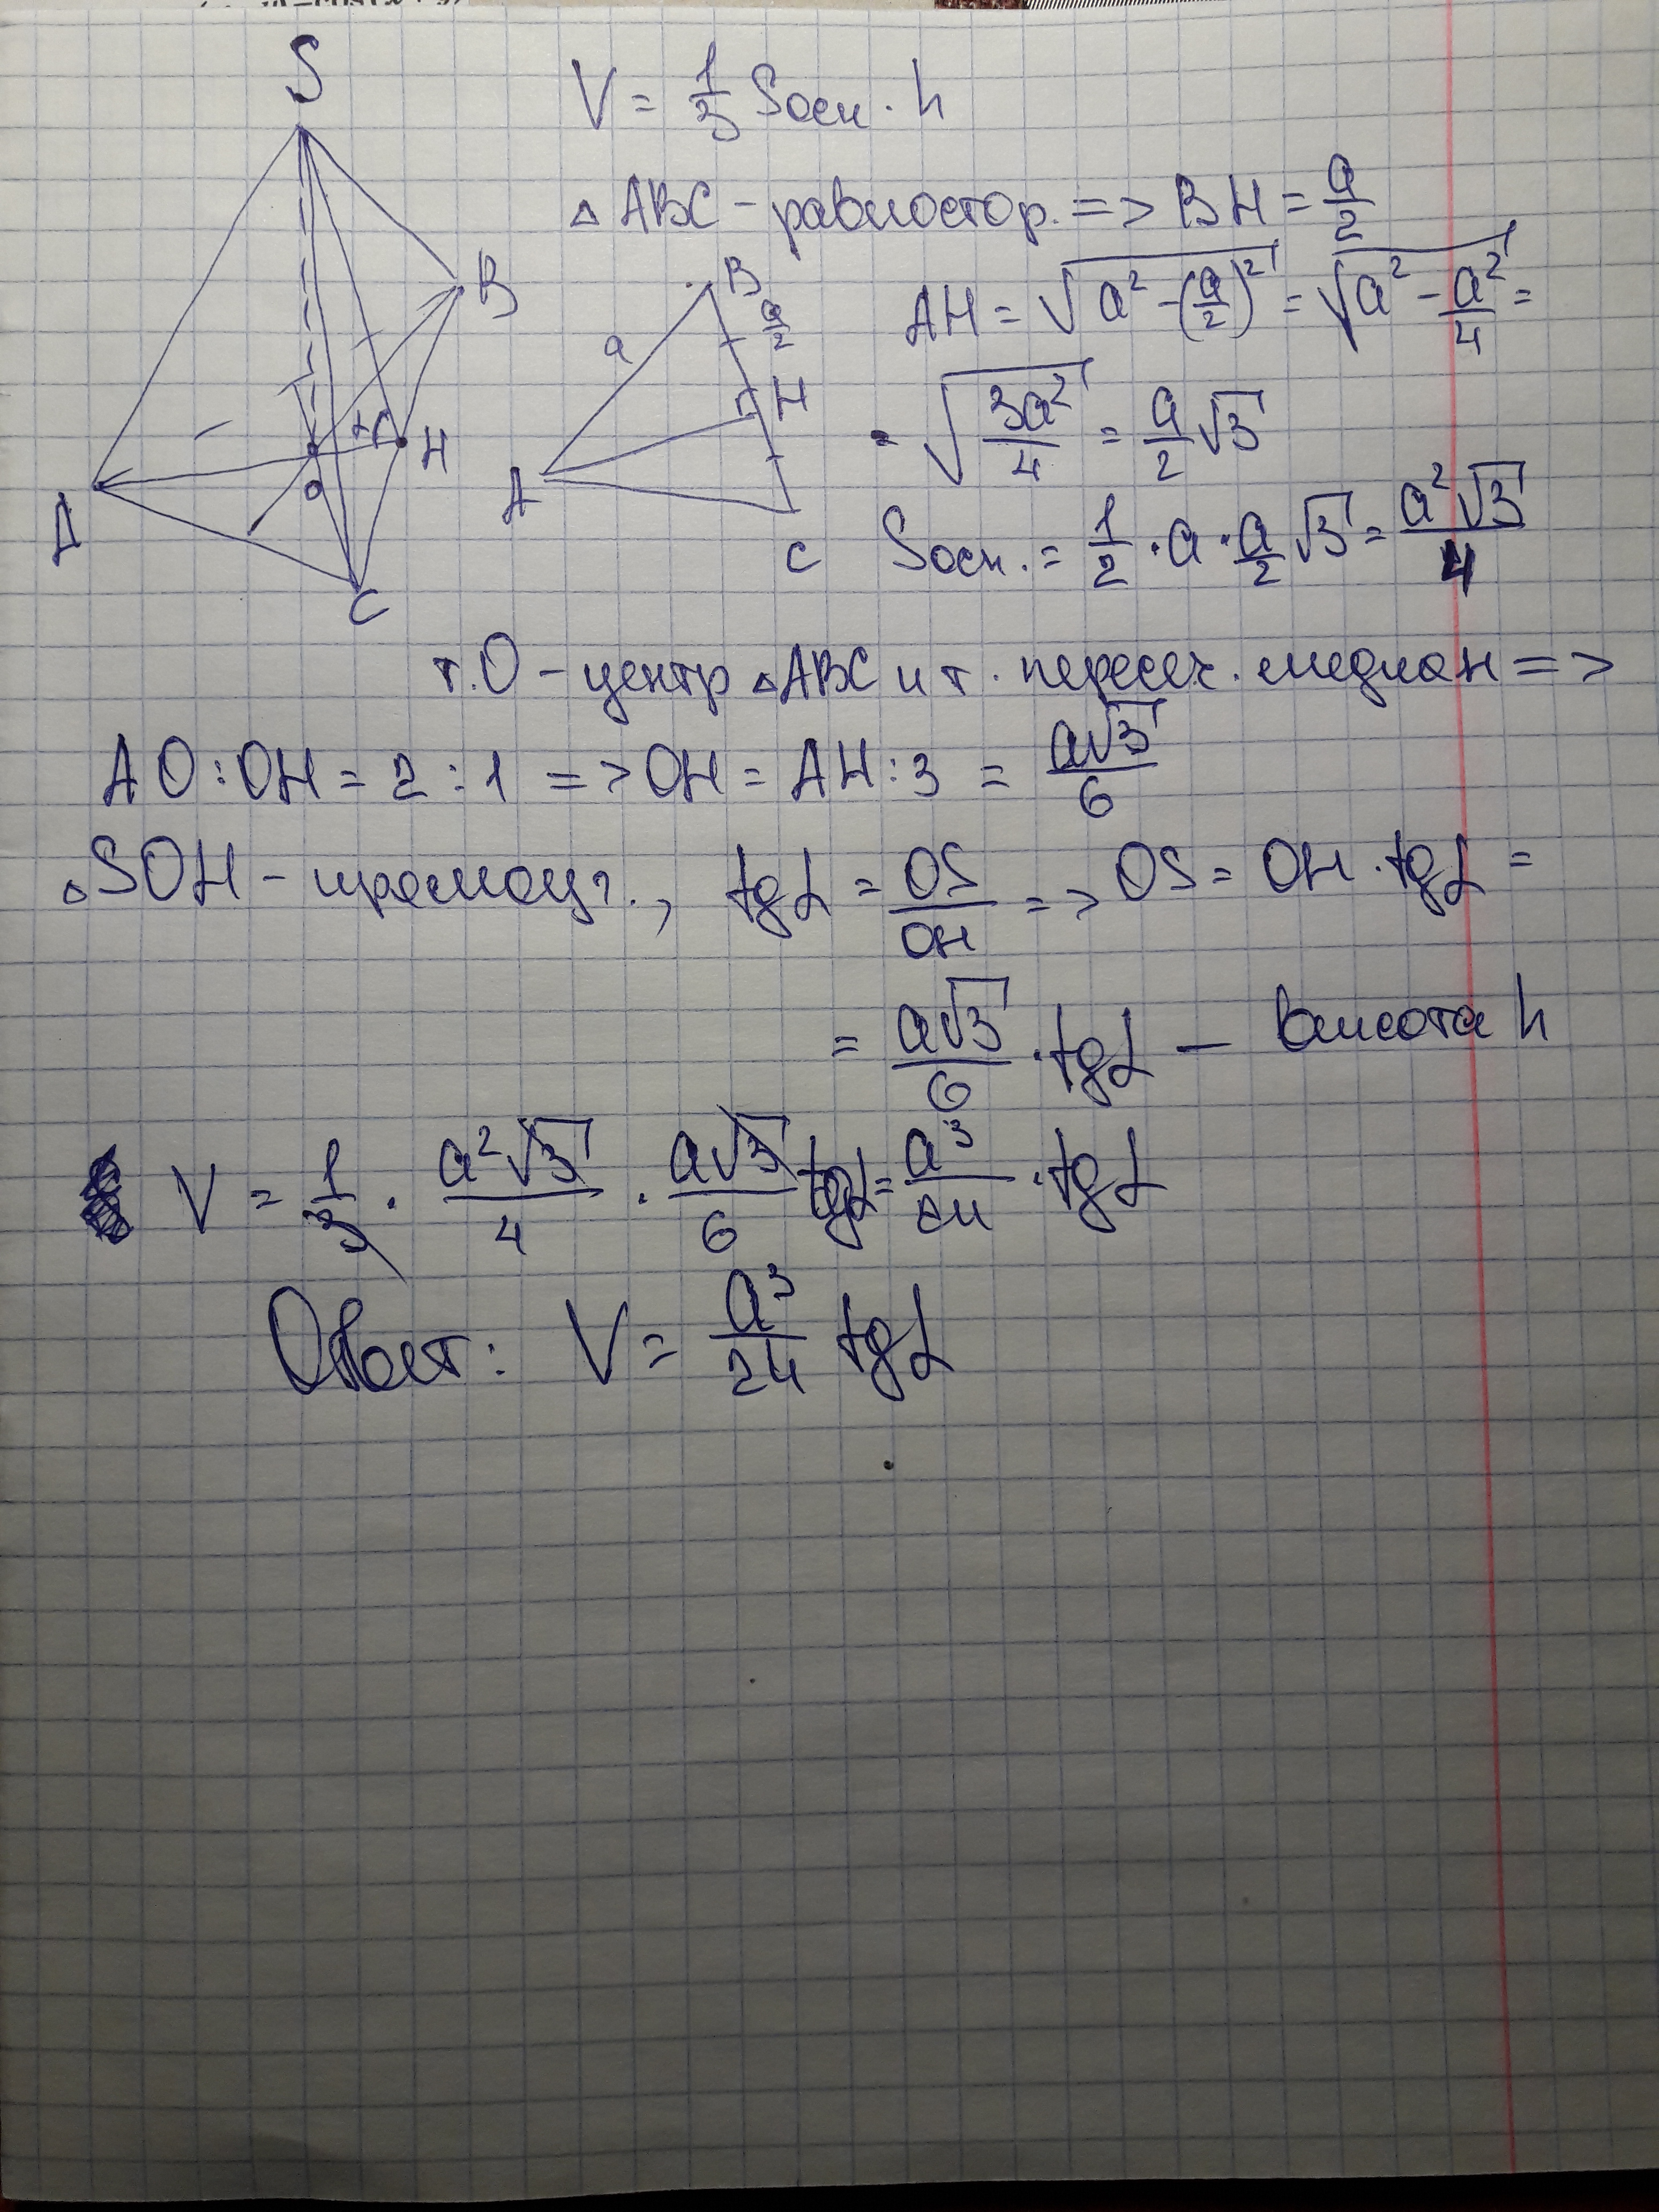 S
V = 1/3 Sосн · h
△ ABC - равностор. => BH = a/2
B
B
a/2
a
H
AH = √(a² - (a/2)²) = √(a² - a²/4) =
= √(3a²/4) = a/2 √3
A
O
H
A
C
C
Sосн. = 1/2 · a · a/2 √3 = a²√3/4
т.O - центр △ABC и т. пересеч. медиан =>
AO:OH = 2:1 => OH = AH:3 = a√3/6
△SOH - прямоуг., tgα = OS/OH => OS = OH · tgα =
= a√3/6 · tgα — высота h
V = 1/3 · a²√3/4 · a√3/6 tgα = a³/24 · tgα
Ответ: V = a³/24 tgα